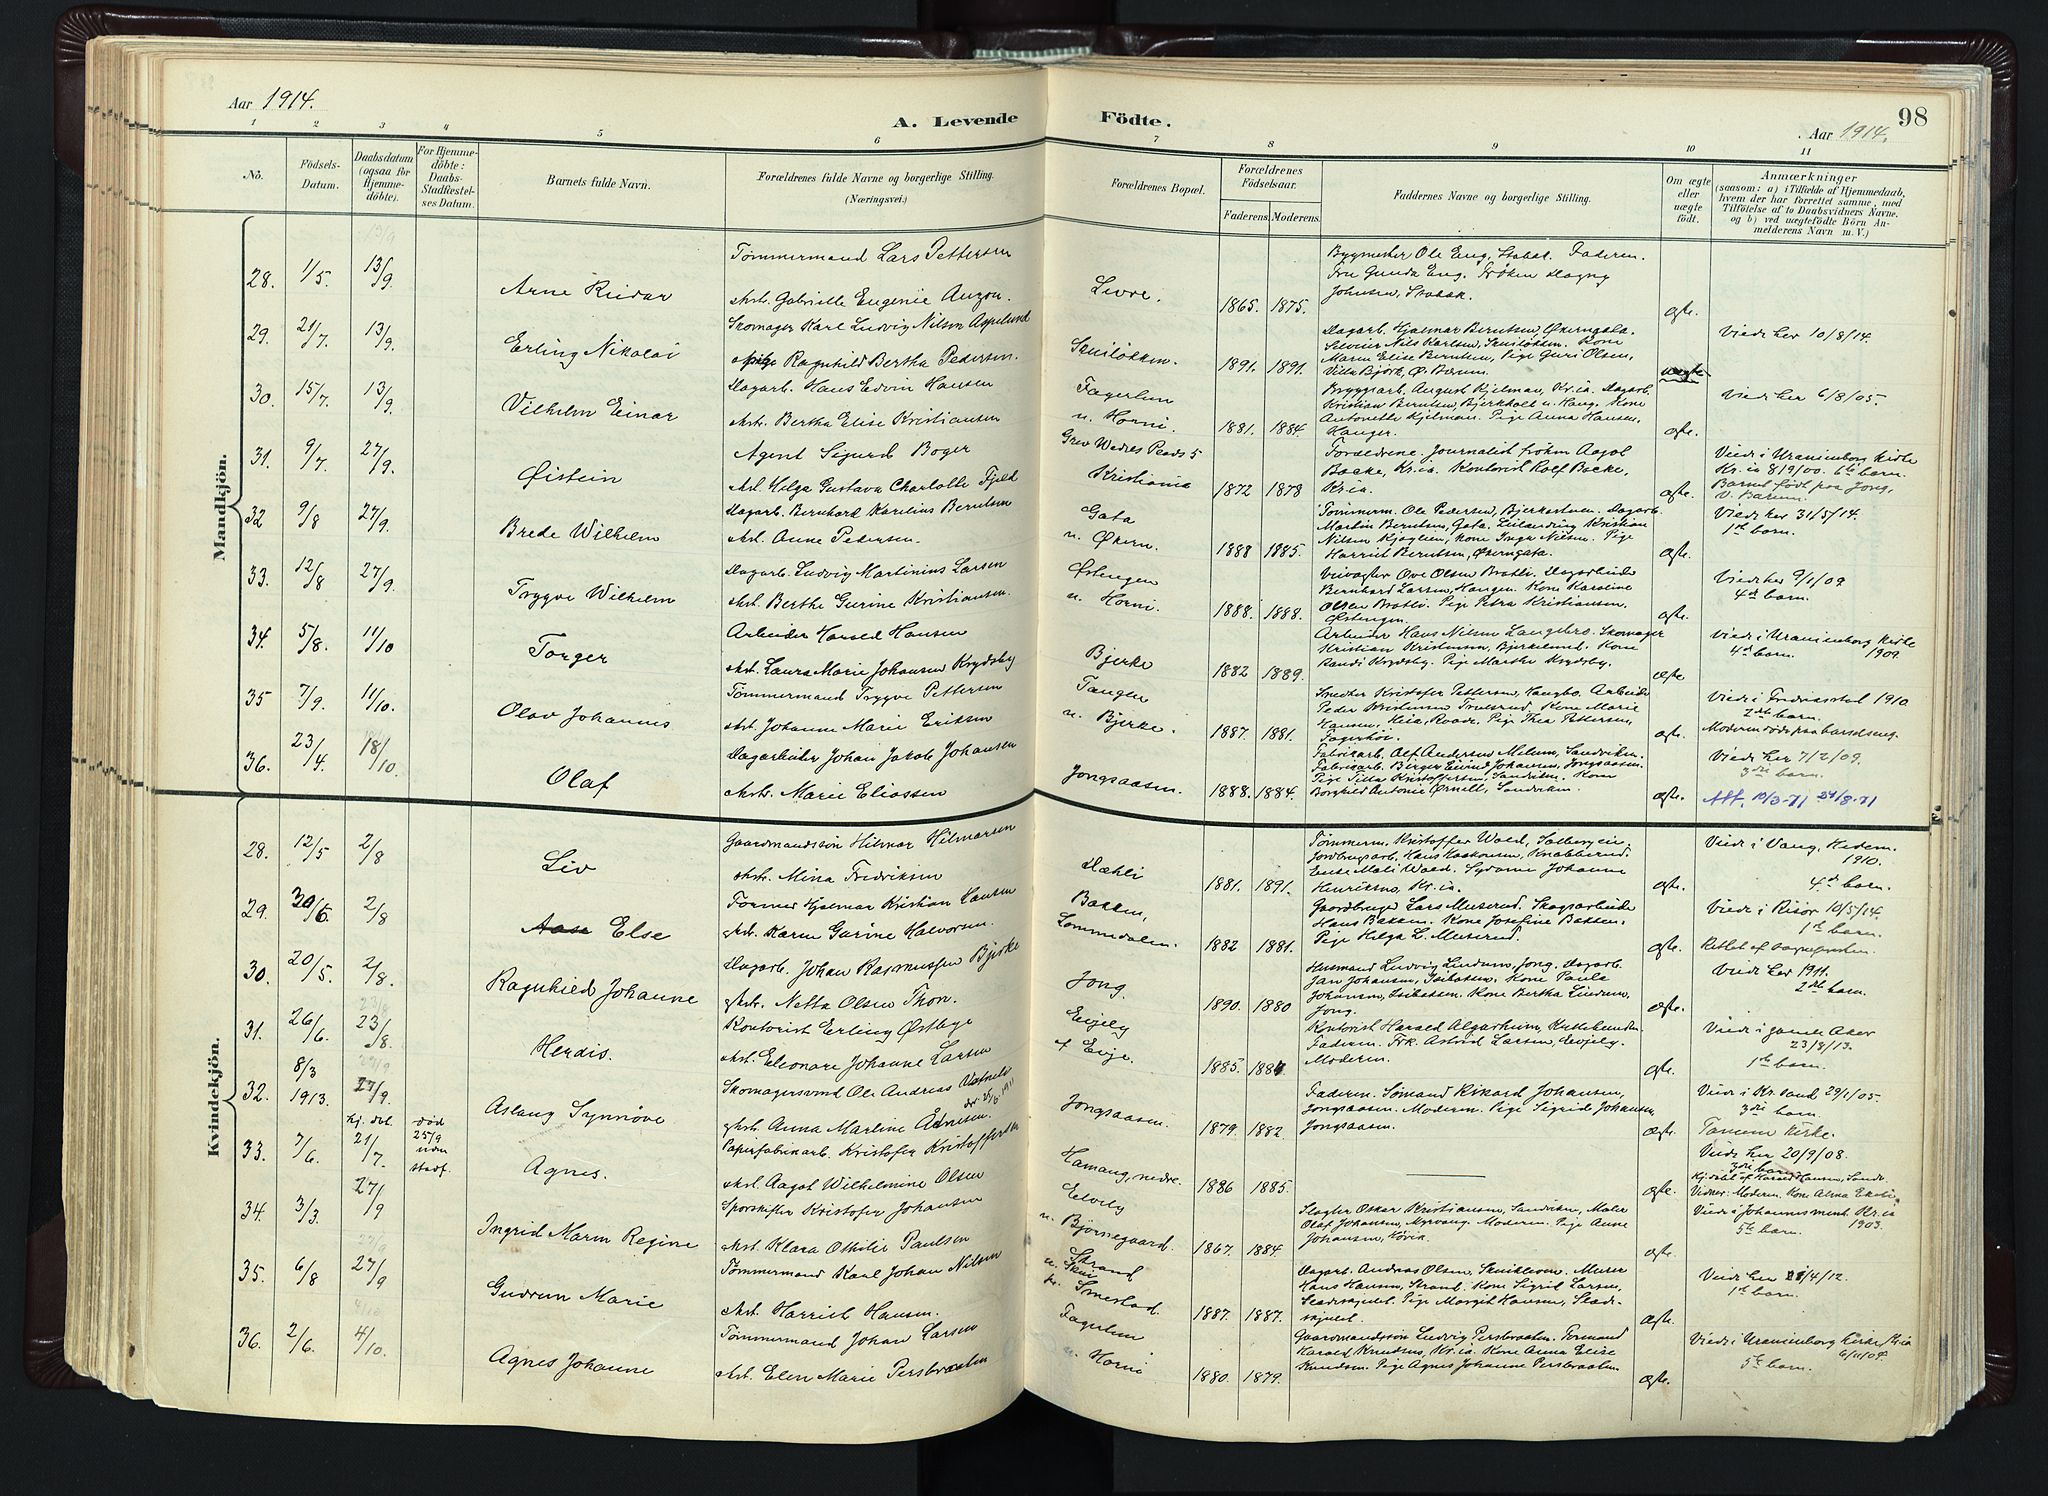 Aar 1914.
A. Levende Födte.
98
Aar 1914.
1 2 3 4 5 6 7 8 9 10 11
No.
Födsels-Datum.
Daabsdatum (ogsaa for Hjemme-döbte).
For Hjemme-döbte: Daabs-Stadfæstel-ses Datum.
Barnets fulde Navn.
Forældrenes fulde Navne og borgerlige Stilling. (Næringsvei.)
Forældrenes Bopæl.
Forældrenes Födselsaar.
Faderens. Moderens.
Faddernes Navne og borgerlige Stilling.
Om ægte eller uægte födt.
Anmærkninger
(saasom: a) i Tilfælde af Hjemmedaab, hvem der har forrettet samme, med Tilföielse af to Daabsvidners Navne, og b) ved uægtefödte Börn An-melderens Navn m. V.)
Mandkjön.
13/9
28. 1/5. 13/9. Arne Reidar
Tømmermand Lars Pettersen
Hst. Gabrielle Eugenie
Levre.
1865. 1875.
Bygmester Ole Eng, Stabæk. Faderen.
Fru Gunda Eng. Frøken Dagny
Johnsen, Stabæk.
ægte.
29. 21/7. 13/9. Erling Nikolai
Skomager Karl Ludvig Nilsen Aspelund
Pige Ragnhild Bertha Pedersen.
Skuiløkken.
1891. 1891.
Dagarb. Hjalmar Berntsen, Økerngata.
Nils Karlsen, Skuiløkken. Kone
Maren Elise Berntsen, Pige Guri Olsen,
Villa Björk, Ø. Bærum.
uægte
Viede her 10/8/14.
30. 15/7. 13/9. Vilhelm Einar
Dagarb. Hans Edvin Hansen
Hst. Bertha Elise Kristiansen
Fagerlun
u. Horni.
1881. 1884.
Bryggarb. August Kjelman, Kr.ia. Dagarb.
Kristian Berntsen, Bjerkholt u. Haug, Kone
Antonette Kjelman. Pige Anna Hansen,
Hanger.
ægte.
Viede her 6/8/05.
31. 9/7. 27/9. Øistein
Agent Sigurd Boger
Hst. Helga Gustava Charlotte Fjeld
Grev Wedels Plads 5
Kristiania
1872 1878
Forældrene. Journalist frøken Aagot
Backe, Kr.ia. Kontorist Rolf Backe,
Kr.ia.
ægte.
Viede i Uranienborg kirke
Kr.ia 8/9/00. 6te barn.
Barnet født paa Jong,
V. Bærum.
32 9/8 27/9. Brede Wilhelm
Dagarb. Bernhard Karelius Berntsen
Hst. Anne Pedersen.
Gata
u. Økern.
1888 1885.
Tømmerm. Ole Pedersen, Bjerkestuen. Dagarb.
Martin Berntsen, Gata. Kristian
Nilsen Kjaglien, Kone Inga Nilsen. Pige
Harriet Berntsen, Økerngata.
ægte.
Viede her 31/5/14.
1ste barn.
33. 12/8 27/9. Trygve Wilhelm
Dagarb. Ludvig Martinius Larsen
Hst. Berthe Gurine Kristiansen.
Østengen
u. Horni.
1888. 1888.
Veivogter Ove Olsen Bratli. Dagarbeider
Bernhard Larsen, Haugen. Kone Karoline
Olsen Bratli. Pige Petra Kristiansen,
Østengen.
ægte.
Viede her 9/1/09.
4de barn.
34. 5/8. 11/10 Torger
Arbeider Harald Hansen
Hst. Laura Marie Johansen Krydsby
Bjerke
1882 1889.
Arbeider Hans Nilsen Langebro. Skomager
Kristian Kristiansen, Bjerkelund. Kone
Randi Krydsby. Pige Marthe Krydsby.
ægte
Viede i Uranienborg kirke
4de barn. 1909.
35 7/9. 11/10. Olav Johannes
Tømmermand Trygve Pettersen
Hst. Johanne Marie Eriksen
Tanglen
u. Bjerke.
1887. 1881.
Smedker Kristofer Pettersen, Haugbo. Arbeider
Peder Kristiansen Trulsrud. Kone Marie
Hansen, Heia, Roade. Pige Thea Pettersen,
Fagerhøi.
ægte.
Viede i Fredriksstad 1910
2det barn.
Moderen døde paa barselseng.
36. 23/4. 18/10. Olaf
Dagarbeider Johan Jakob Johansen
Hst. Marie Eliassen
Jongsaasen.
1888. 1884.
Fabrikarb. Alf Andersen Melum, Sandviken.
Fabrikarb. Birger Eivind Johansen, Jongsaasen.
Pige Tilla Kristoffersen, Sandviken. Kone
Borghild Antonie Ørnell, Sandviken.
ægte.
Viede her 7/2/09.
3die barn.
Att. 12/3-71 24/8-71
Kvindekjön.
28. 12/5 2/8 Liv
Gaardmandssøn Hilmar Hilmarsen
Hst. Mina Fredriksen
Dæhli
1881. 1891.
Tømmerm. Kristoffer Wold, Solbergeie.
Jordbrugsarb. Hans Haakonsen, Knabberud.
Enke Mali Wold. Sydame Johanne
Henriksen, Kr.ia.
ægte.
Viede i Vang, Hedem.
1910.
4de barn.
29. 30/6. 2/8 Aase Else
Formand Hjalmar Kristian Hansen
Hst. Karen Gurine Halvorsen.
Bakken,
Lommedalen.
1882 1881.
Gaardbruger Lars Muserud. Skogsarbeider
Hans Bakken. Kone Josefine Bakken.
Pige Helga L. Muserud.
ægte.
Viede i Risør 10/5/14.
1ste barn.
Rettet af sognepresten.
30. 20/5. 2/8. Ragnhild Johanne
Dagarb. Johan Rasmussen Bjerke
Hst. Netta Olsen Thon.
Jong.
1890. 1880
Husmand Ludvig Lindum, Jong. Dagarb.
Jan Johansen, Isibakken. Kone Paula
Johansen, Isibakken. Kone Bertha Lindum,
Jong.
ægte.
Viede her 1911.
2det barn.
23/8
31. 26/6. 23/8. Herdis.
Kontorist Erling Østbye
Hst. Eleonore Johanne Larsen
Eveily
p. Evje.
1885. 1887
Kontorist Harald Algarheim,
Faderen. Frk. Astrid Larsen, Eveily.
Moderen.
ægte.
Viede i gamle Aker
23/8/13.
1ste barn.
32. 8/3 1913. 27/9. Aslaug Synnøve
Skomagersvend Ole Andreas
Hst. Anna Martine
Jongsaasen.
1879. 1882.
Faderen. Sømand Rikard Johansen,
Jongsaasen. Moderen. Pige Sigrid Johansen
Jongsaasen.
ægte.
Viede i Kr.sand 29/1/05.
3die barn.
33. 7/6. hj. dbt. 21/7. død 25/9 uden stadf. Agnes.
Papirfabrikarb. Kristofer Kristoffersen
Hst. Aagot Wilhelmine Olsen
Hamang, nedre.
1886 1885.
ægte.
Tanum kirke.
Viede her 20/9/08.
3die barn.
Hj.døbt af Harald Hansen, Sandv.
Vidner: Moderen. Kone Alma
34. 3/3. 27/9 Ingrid Maren Regine
Sporskifter Kristofer Johansen
Hst. Klara Othilie Paulsen
Eelvely
u. Bjørnegaard.
1867. 1884.
Slagter Oskar Kristiansen, Sandviken. Maler
Olaf Johansen, Myrvang. Moderen. Pige Anne
Johansen, Høvik.
ægte.
Viede i Johannes menigh. Kr.ia
1903.
5te barn.
35. 6/8 27/9 Gudrun Marie
Tømmermand Karl Johan Nilsen
Hst. Harriet Hansen.
Strand
u. Skui
p. Smestad.
1887. 1887.
Dagarb. Andreas Olsen, Skuikleven. Murer
Hans Hansen, Strand. Kone Sigrid Larsen,
Stadsskjulet. Pige Margit Hansen, Stads-
skjulet.
ægte.
Viede her 21/4/12.
1ste barn.
4/10
36. 2/6. 4/10. Agnes Johanne
Tømmermand Johan Larsen
Hst. Elen Marie Persbraaten
Fagerlun
u. Horni
1880. 1879.
Gaardmandssøn Ludvig Persbraaten. Formand
Harald Knudsen, Kr.ia. Kone Anna Elise
Knudsen. Pige Agnes Johanne Persbraaten
ægte.
Viede i Uranienborg Kirke, Kr.ia
6/11/04.
5te barn.